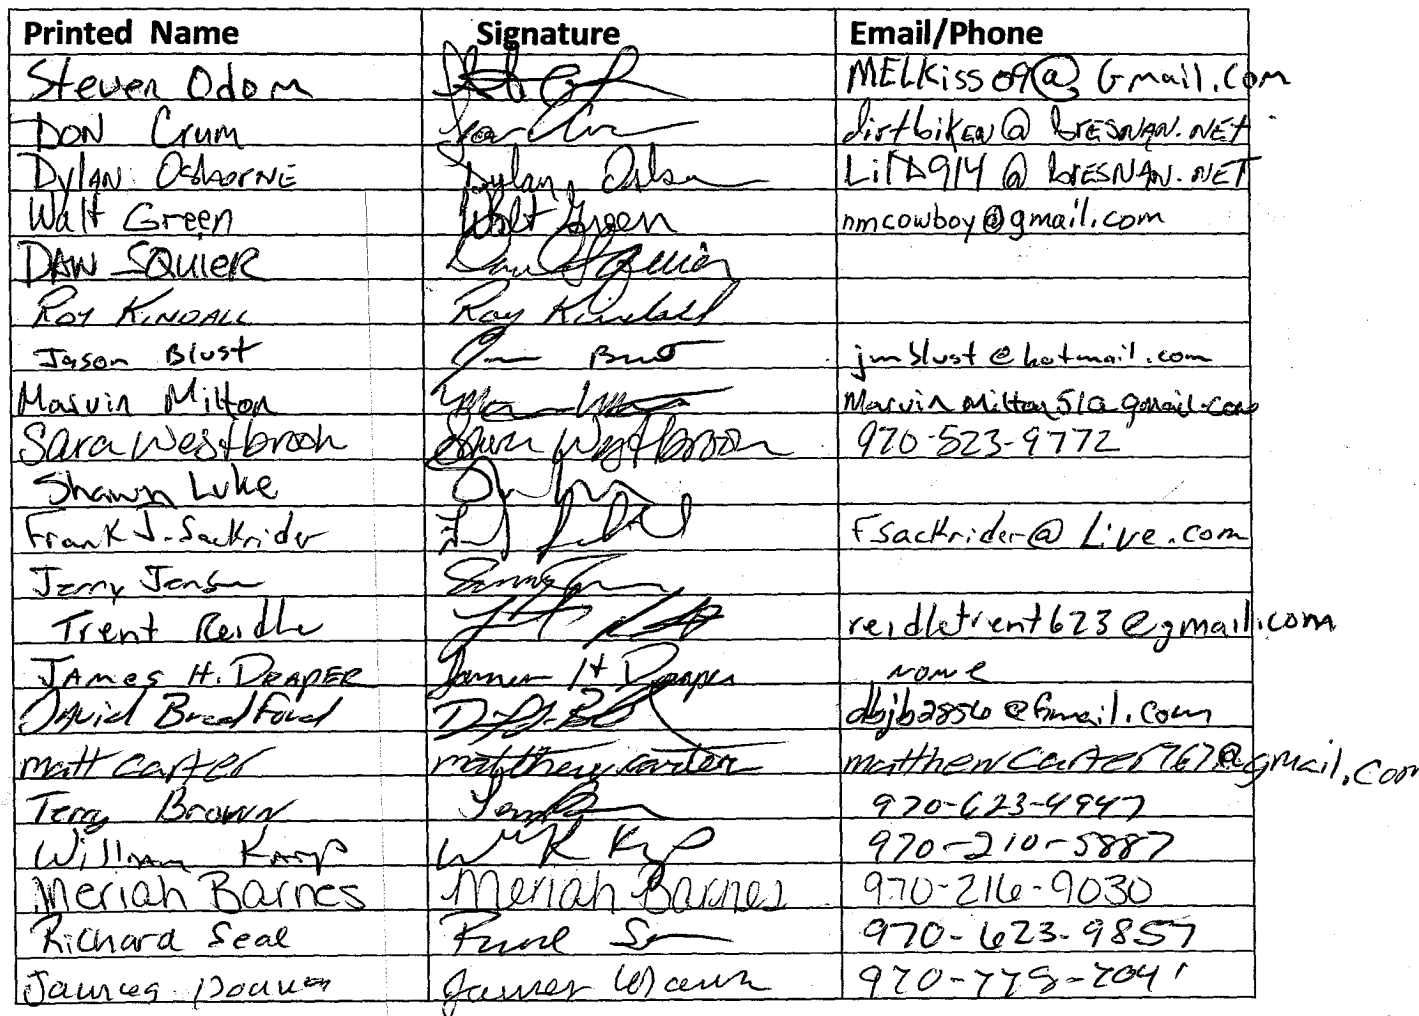 Printed Name Signature Email/Phone
Steven Odom MELKiss09@Gmail.com
DON Crum dirtbiker@bresnan.net
Dylan Osborne Dylan LilD914@bresnan.net
Walt Green Walt Green nmcowboy@gmail.com
DAN SQUIER Dan Squier
Roy Kindall Roy Kindall
Jason Blust jmblust@hotmail.com
Marvin Milton MarvinMilton51@gmail.com
Sara Westbrook Sara Westbrook 970-523-9772
Shawn Luke
Frank J. Sackrider Fsackrider@Live.com
Jerry Jensen
Trent Reidle reidletrent623@gmail.com
James H. Draper James H Draper none
David Bradford dbjb2856@Gmail.com
matt carter matthew carter matthewcarter767@gmail.com
Terry Brown 970-623-4947
William Karp 970-210-5887
Meriah Barnes Meriah Barnes 970-216-9030
Richard Seal 970-623-9857
James James